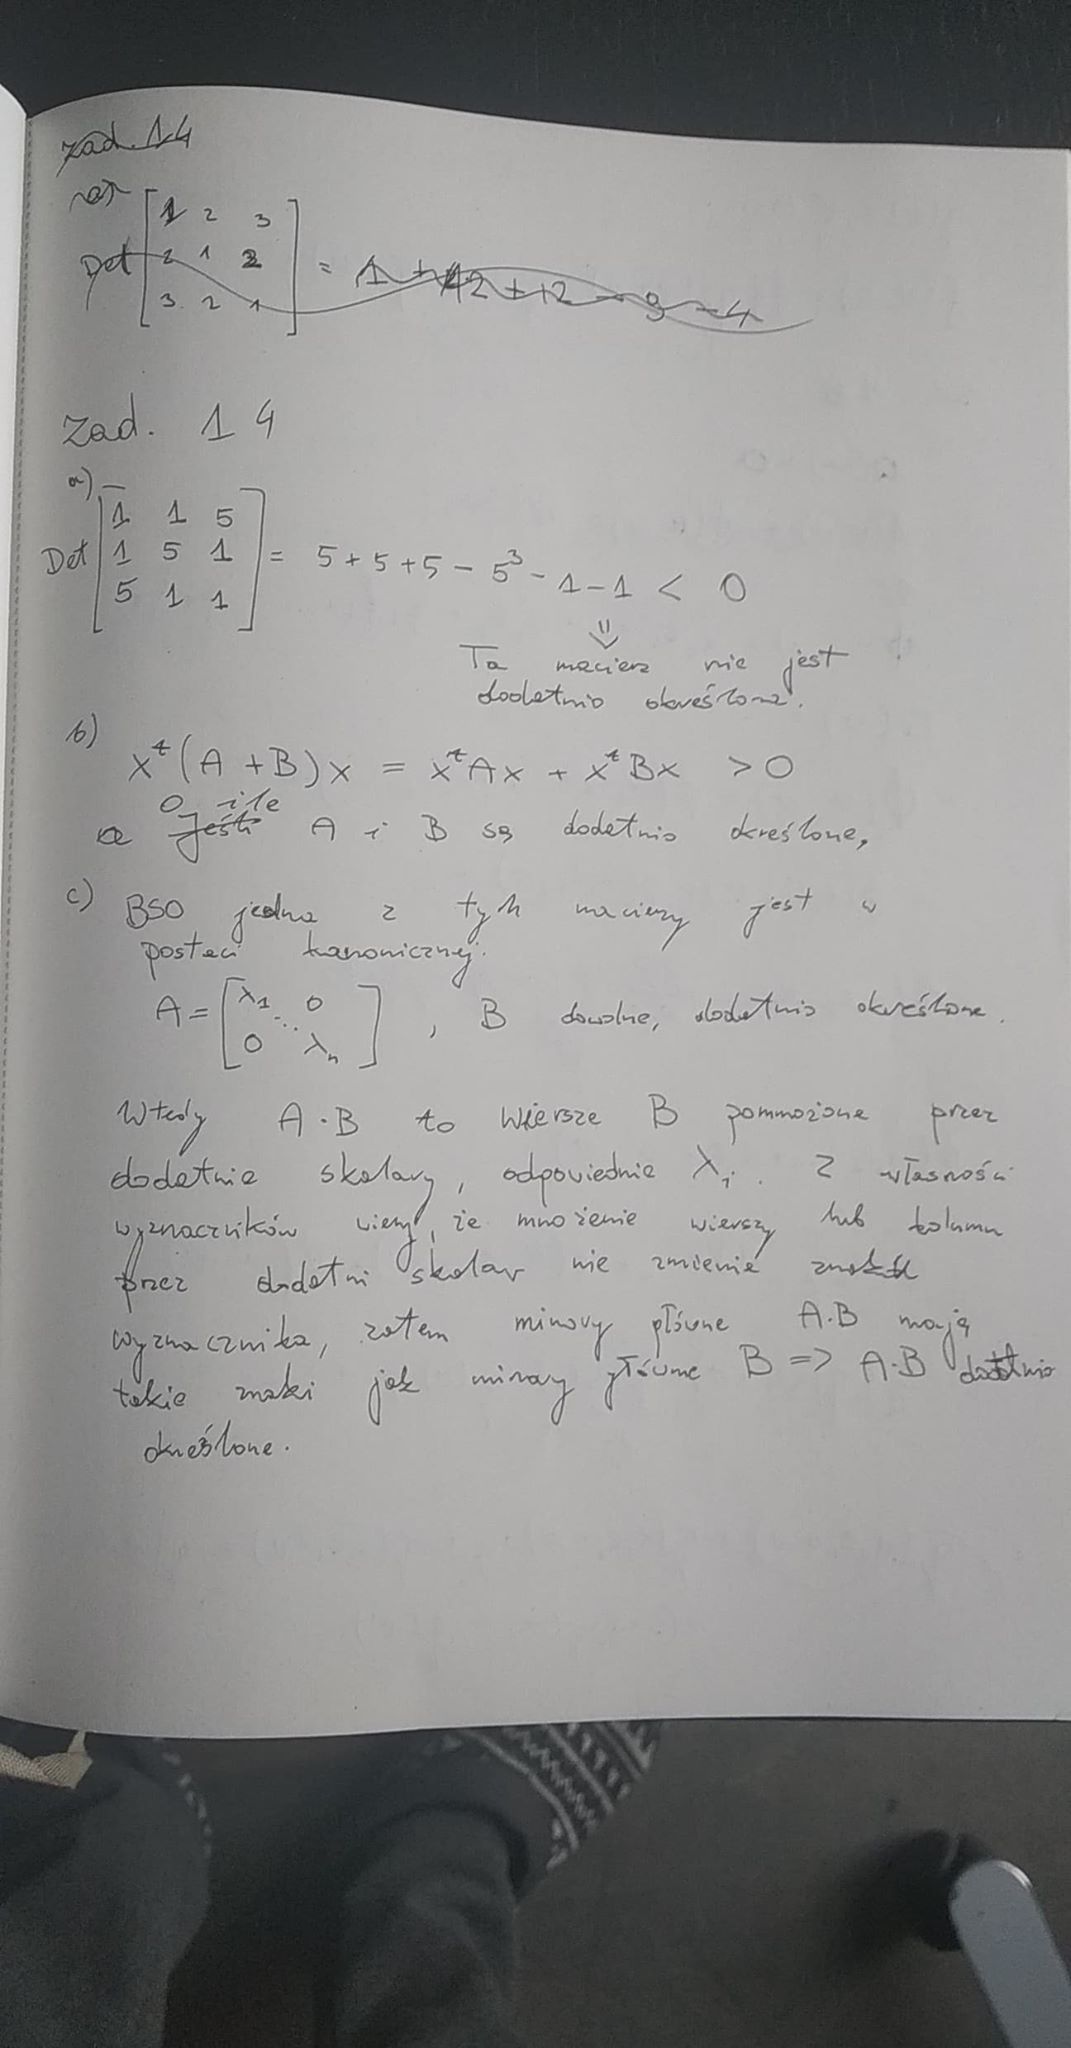 zad. 14
Det [1 2 3
2 1 2
3 2 1] = 1 + 12 + 12 - 9 - 4
Zad. 14
a)
Det [1 1 5
1 5 1
5 1 1] = 5 + 5 + 5 - 5³ - 1 - 1 < 0
⇓
Ta macierz nie jest
dodatnio określona.
b)
xᵗ(A + B)x = xᵗAx + xᵗBx > 0
O ile
Jeśli A i B są dodatnio określone,
c) BSO jedna z tych macierzy jest w
postaci kanonicznej.
A = [λ₁ 0
⋱
0 λₙ] , B dowolne, dodatnio określone.
Wtedy A·B to wiersze B pommożone przez
dodatnie skalary, odpowiednie λᵢ. Z własności
wyznaczników wiemy, że mnożenie wierszy lub kolumn
przez dodatni skalar nie zmienia znaku
wyznacznika, zatem minory główne A·B mają
takie znaki jak minory główne B => A·B dodatnio
określone.